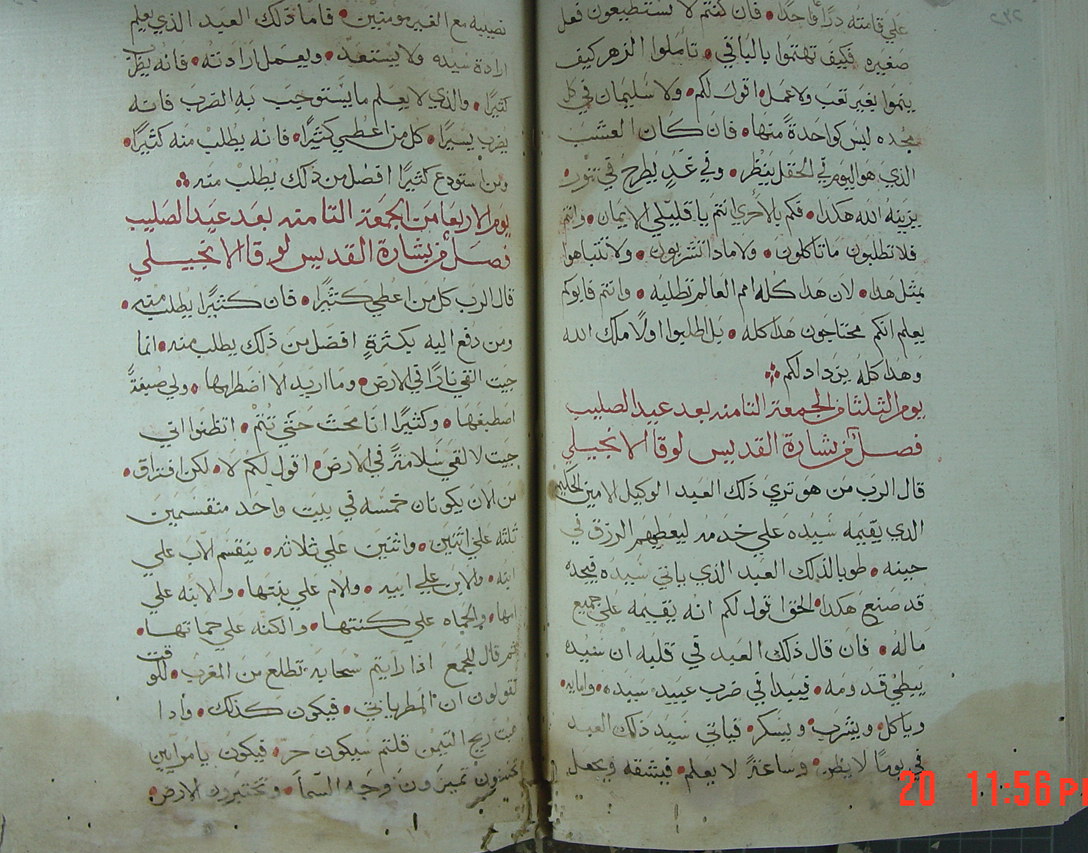 علي قامته دراعًا واحدًا • فان كنتم لا تستطيعون فعل
صغيره فكيف تهتموا بالباقي • تاملوا الزهر كيف
ينموا بغير تعب ولا عمل • اقول لكم • ولا سليمان في كل
مجده لبس كواحدة منها • فان كان العشب
الذي هو اليوم في الحقل ينظر • وفي غدٍ يطرح في تنور •
يزينه الله هكذا • فكم بالاحري انتم يا قليلي الايمان • وانتم
فلا تطلبون ما تاكلون • ولا ماذا تشربون • ولا تتباهوا
بمثل هذا • لان هذا كله امم العالم تطلبه • وانتم فابوكم
يعلم انكم محتاجون هذا كله • بل اطلبوا اولًا ملك الله
وهذا كله يزداد لكم
يوم الثلثا من الجمعة الثامنه بعد عيد الصليب
فصل من بشارة القديس لوقا الانجيلي
قال الرب من هو تري ذلك العبد الوكيل الامين الحكيم
الذي يقيمه سيده علي خدمه ليعطيهم الرزق في
حينه • طوبا لذلك العبد الذي ياتي سيده فيجده
قد صنع هكذا • الحق اقول لكم انه يقيمه علي جميع
ماله • فان قال ذلك العبد في قلبه ان سيده
يبطي قدومه • فيبدا في ضرب عبيد سيده • وامايه •
وياكل • ويشرب • ويسكر • فياتي سيد ذلك العبد
في يومًا لا يظن • وساعة لا يعلم • فيشقه ويجعل
نصيبه مع الغير مومنين • فاما ذلك العبد الذي يعلم
ارادة سيده ولا يستعد • ويعمل ارادته • فانه يضرب
كثيرًا • والذي لا يعلم ما يستوجب به الضرب فانه
يضرب يسيرًا • كل من اعطي كثيرًا • فانه يطلب منه كثيرًا •
ومن استودع كثيرًا افضل من ذلك يطلب منه
يوم الاربعا من الجمعة الثامنه بعد عيد الصليب
فصل من بشارة القديس لوقا الانجيلي
قال الرب كل من اعطي كثيرًا • فان كثيرًا يطلب منه •
ومن دفع اليه بكثرةٍ افضل من ذلك يطلب منه • انما
جيت القي نارًا في الارض • وما اريد الا اضطرامها • ولي صبغةً
اصطبغها • وكثيرًا انا محث حتي تتم • اتظنوا اني
جيت لالقي سلامة في الارض • اقول لكم لا • لكن افتراق •
من الان يكونان خمسه في بيت واحد منقسمين
ثلثه علي اثنين • واثنين علي ثلاثه • ينقسم الاب علي
ابنه • والابن علي ابيه • والام علي بنتها • والابنه علي
امها • والحماه علي كنتها • والكنه علي حماتها •
ثم قال للجمع اذا رايتم سحابه تطلع من المغرب • فللوقت
تقولون ان المطر ياتي • فيكون كذلك • واذا
هبت ريح التيمن قلتم سيكون حر • فيكون يا مرايين
تحسنون تميزون وجه السما • وتختبرون الارض •
20 11:56 PM